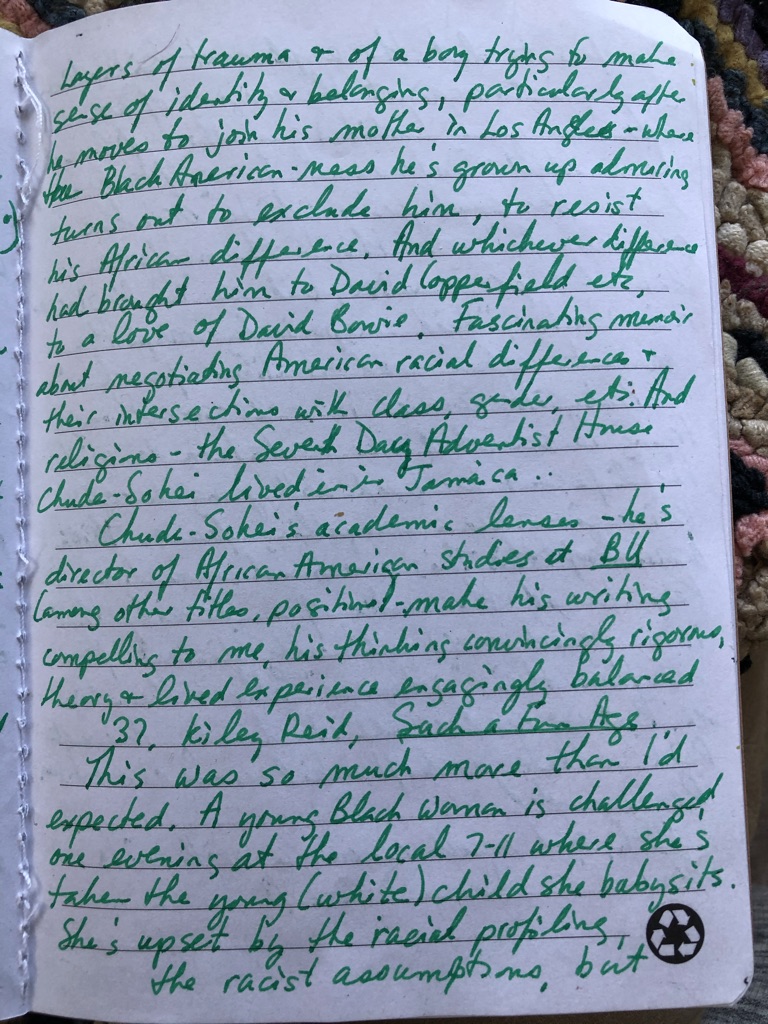 Layers of trauma & of a boy trying to make
sense of identity & belonging, particularly after
he moves to join his mother in Los Angles - where
the Black American-ness he's grown up admiring
turns out to exclude him, to resist
his African difference. And whichever difference
had brought him to David Copperfield etc,
to a love of David Bowie. Fascinating memoir
about negotiating American racial differences &
their intersections with class, gender, etc. And
religions - the Seventh Day Adventist House
Chude-Sokei lived in in Jamaica..
Chude-Sokei's academic lenses - he's
director of African American studies at BU
(among other titles, positions) - make his writing
compelling to me, his thinking convincingly rigorous,
theory & lived experience engagingly balanced
37. Kiley Reid, Such a Fun Age.
This was so much more than I'd
expected. A young Black woman is challenged
one evening at the local 7-11 where she's
taken the young (white) child she babysits.
She's upset by the racial profiling,
the racist assumptions, but